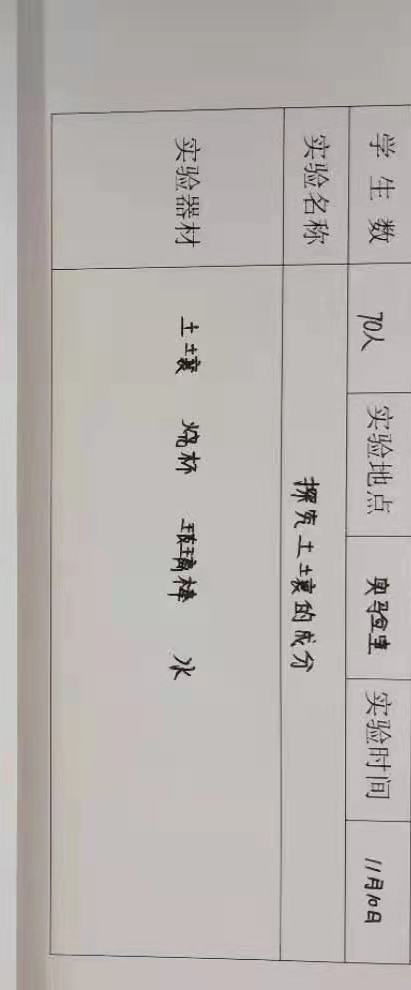 学生数 70人 实验地点 实验室 实验时间 11月10日
实验名称 探究土壤的成分
实验器材 土壤 烧杯 玻璃棒 水